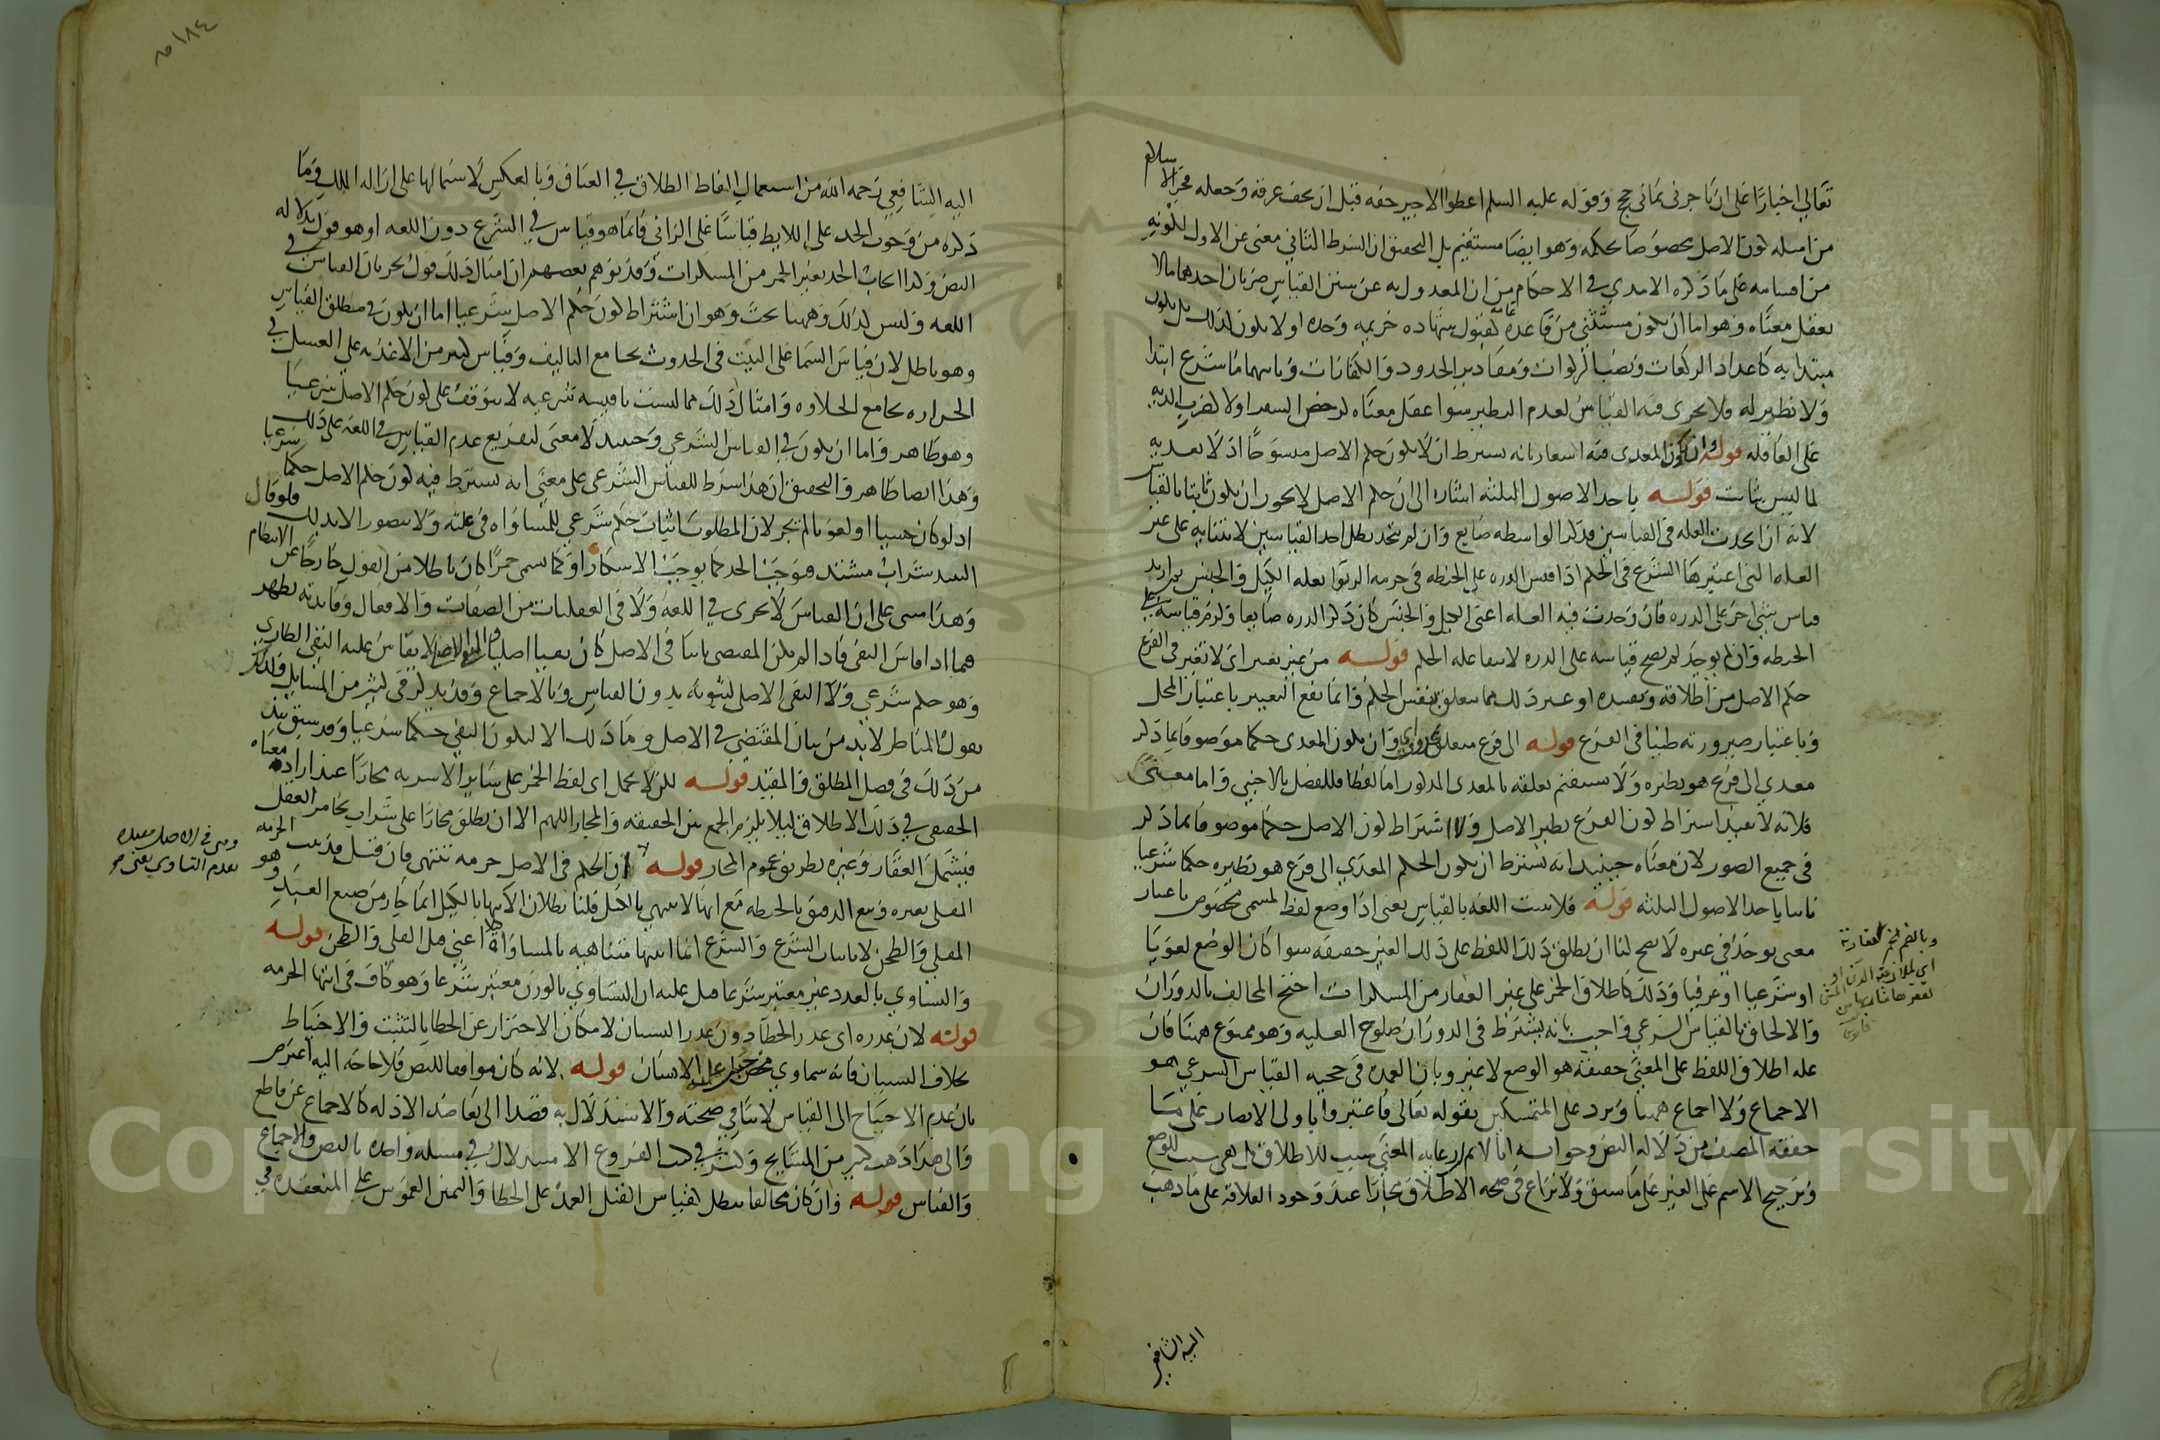 تعالى اخبارا على ان تاجرنى ثمانى حجج وقوله عليه السلم اعطوا الاجير حقه قبل ان يجف عرقه وجعله فخر الاسلام
من امثله كون الاصل مخصوصا بحكمه وهو ايضا مستقيم بل التحقيق ان الشرط الثانى مغنى عن الاول لكونه
من اقسامه على ما ذكره الامدى فى الاحكام من ان المعدول به عن سنن القياس ضربان احدهما ما لا
يعقل معناه وهو اما ان يكون مستثنى من قاعدة عامة كقبول شهاده خزيمه وحده او لا يكون كذلك بل يكون
مبتدا به كاعداد الركعات ونصب الزكوات ومقادير الحدود والكفارات وثانيهما ما شرع ابتدا
ولا نظير له فلا يجرى فيه القياس لعدم النظير سوا عقل معناه كرخص السفر او لا كضرب الديه
على العاقله قوله وان يكون المعدى فيه اشعار بانه يشترط ان لا يكون حكم الاصل منسوخا اذ لا تعديه
لما ليس بثابت قوله باحد الاصول الثلثه اشاره الى ان حكم الاصل لا يجوز ان يكون ثابتا بالقياس
لانه ان اتحدت العله فى القياسين فذكر الواسطه ضايع وان لم تتحد بطل احد القياسين لابتنايه على غير
العله التى اعتبرها الشرع فى الحكم اذا قيس الذره على الحنطه فى حرمه الربوا بعله الكيل والجنس ثم اريد
قياس شى اخر على الذره فان وجدت فيه العله اعنى الكيل والجنس كان ذكر الذره ضايعا ولزم قياسه على
الحنطه وان لم يوجد لم يصح قياسه على الذره لانتفا عله الحكم قوله من غير تغيير اى لا تغير فى الفرع
حكم الاصل من اطلاقه وتقييده او غير ذلك مما يتعلق بنفس الحكم وانما يقع التغيير باعتبار المحل
وباعتبار صيرورته ظنيا فى الفرع قوله الى فرع متعلق بمحذوف اى وان يكون المعدى حكما موصوفا بما ذكر
معدى الى فرع هو نظيره ولا يستقيم تعلقه بالمعدى المذكور اما لفظا فللفصل بالاجنبى واما معنى
فلانه لا يفيد اشتراط كون الفرع نظير الاصل ولا اشتراط كون الاصل حكما موصوفا بما ذكر
فى جميع الصور لان معناه حينئذ انه يشترط ان يكون الحكم المعدى الى فرع هو نظيره حكما شرعيا
ثابتا باحد الاصول الثلثه قوله فلا يثبت اللغه بالقياس يعنى اذا وضع لفظ لمسمى مخصوص باعتبار
معنى يوجد فى غيره لا يصح لنا ان نطلق ذلك اللفظ على ذلك الغير حقيقه سوا كان الوضع لغويا
او شرعيا او عرفيا وذلك كاطلاق الخمر على غير العقار من المسكرات احتج المخالف بالدوران
والالحاق بالقياس الشرعى واجيب بانه يشترط فى الدوران صلوح العليه وهو ممنوع ههنا فان
عله اطلاق اللفظ على المعنى حقيقه هو الوضع لا غير وبان العمده فى حجيه القياس الشرعى هو
الاجماع ولا اجماع ههنا ويرد على المتمسكين بقوله تعالى فاعتبروا يا اولى الابصار على ما
حققه المصنف من دلاله النص وجوابه انا لا نم ان رعايه المعنى سبب للاطلاق بل هى سبب للوضع
وترجيح الاسم على الغير على ما سبق ولا نزاع فى صحه الاطلاق مجازا عند وجود العلاقه على ما ذهب
وبالضم الخمر
اليه الشافعى
١٨٤
اليه الشافعى رحمه الله من استعمال الفاظ الطلاق فى العتاق وبالعكس لاشتمالها على ازاله الملك وما
ذكره من وجوب الحد على اللايط قياسا على الزانى فانما هو قياس فى الشرع دون اللغه او هو قول بدلاله
النص وكذا ايجاب الحد بغير الخمر من المسكرات وقد توهم بعضهم ان امثال ذلك قول بجريان القياس فى
اللغه وليس كذلك وههنا بحث وهو ان اشتراط كون حكم الاصل شرعيا اما ان يكون فى مطلق القياس
وهو باطل لان قياس السما على البيت فى الحدوث بجامع التاليف وقياس كثير من الاغذيه على العسل فى
الحراره بجامع الحلاوه وامثال ذلك مما ليست باقيسه شرعيه لا يتوقف على كون حكم الاصل شرعيا
وهو ظاهر واما ان يكون فى القياس الشرعى وحينئذ لا معنى لتفريع عدم القياس فى اللغه على ذلك
وهذا ايضا ظاهر والتحقيق ان هذا شرط للقياس الشرعى على معنى انه يشترط فيه كون حكم الاصل حكما شرعيا
اذ لو كان حسيا او لغويا لم يجز لان المطلوب اثبات حكم شرعى للمساواه فى علته ولا يتصور الا بذلك فلو قال
النبيذ شراب مشتد فيوجب الحد كما يوجب الاسكار او كما يسمى خمرا كان باطلا من القول خارجا عن الانتظام
وهذا مبنى على ان القياس لا يجرى فى اللغه ولا فى العقليات من الصفات والافعال وفايدته تظهر
فيما اذا قاس النفى فاذا لم يكن المقتضى ثابتا فى الاصل كان نفيا اصليا والنفى الاصلى لا يقاس عليه النفى الطارى
وهو حكم شرعى ولا النفى الاصلى لثبوته بدون القياس وبلا جامع وقد يذكر فى كثير من المسايل ولذلك
يقول المناظر لا بد من بيان المقتضى فى الاصل وما ذلك الا ليكون النفى حكما شرعيا وقد سبق نبذ
من ذلك فى فصل المطلق والمقيد قوله لكن لا يحمل اى لفظ الخمر على ساير الاشربه مجازا عند اراده معناه
الحقيقى فى ذلك الاطلاق ليلا يلزم الجمع بين الحقيقه والمجاز اللهم الا ان يطلق مجازا على شراب يخامر العقل
فيشمل العقار وغيره بطريق عموم المجاز قوله لان الحكم فى الاصل حرمه تنتهى فان قيل قد ثبت الحرمه
المقلى بغيره وبيع الدقيق بالحنطه مع انها لا تنتهى بالكيل قلنا بطلان الانتها بالكيل انما جا من صنع العبد وهو
المقلى والطحن لا باثبات الشرع والشرع انما اثبتها متناهيه بالمساواة كيلا اعنى قبل القلى والطحن قوله
والتساوى بالعدد غير معتبر شرعا قيل عليه ان التساوى بالوزن معتبر شرعا وهو كاف فى انتها الحرمه
قوله لان عذره اى عذر الخطا دون عذر النسيان لامكان الاحتراز عن الخطا بالتثبت والاحتياط
بخلاف النسيان فانه سماوى محض جبل عليه الانسان قوله لانه كان موافقا للنص فلا حاجه اليه اعترض
بان عدم الاحتياج الى القياس لا ينافى صحته والاستدلال به قصدا الى تعاضد الادله كالاجماع عن قاطع
والى هذا ذهب كثير من المشايخ وكثر فى كتب الفروع الاستدلال فى مسئله واحده بالنص والاجماع
والقياس قوله وان كان مخالفا يبطل كقياس القتل العمد على الخطا واليمين الغموس على المنعقده فى
Copyright © King Saud University